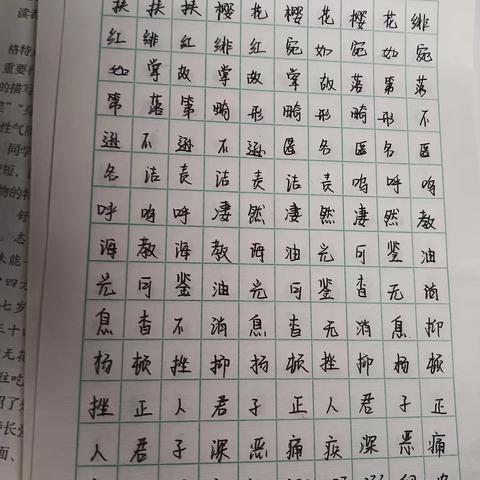 读者
格特
重要
的描写
性气质
同学
物的特
舒
未能一
七岁
三十四
无花
往吃
面、
扶扶扶樱花樱花樱花绯
红绯红绯红宛如宛如宛
如掌故掌故掌故落第落
第落第畸形畸形畸形不
逊不逊不逊匿名匿名匿
名诘责诘责诘责呜呼呜
呼呜呼凄然凄然凄然教
诲教诲教诲油光可鉴油
光可鉴油光可鉴杳无消
息杳不消息杳无消息抑
扬顿挫抑扬顿挫抑扬顿
挫正人君子正人君子正
人君子深恶痛疾深恶痛